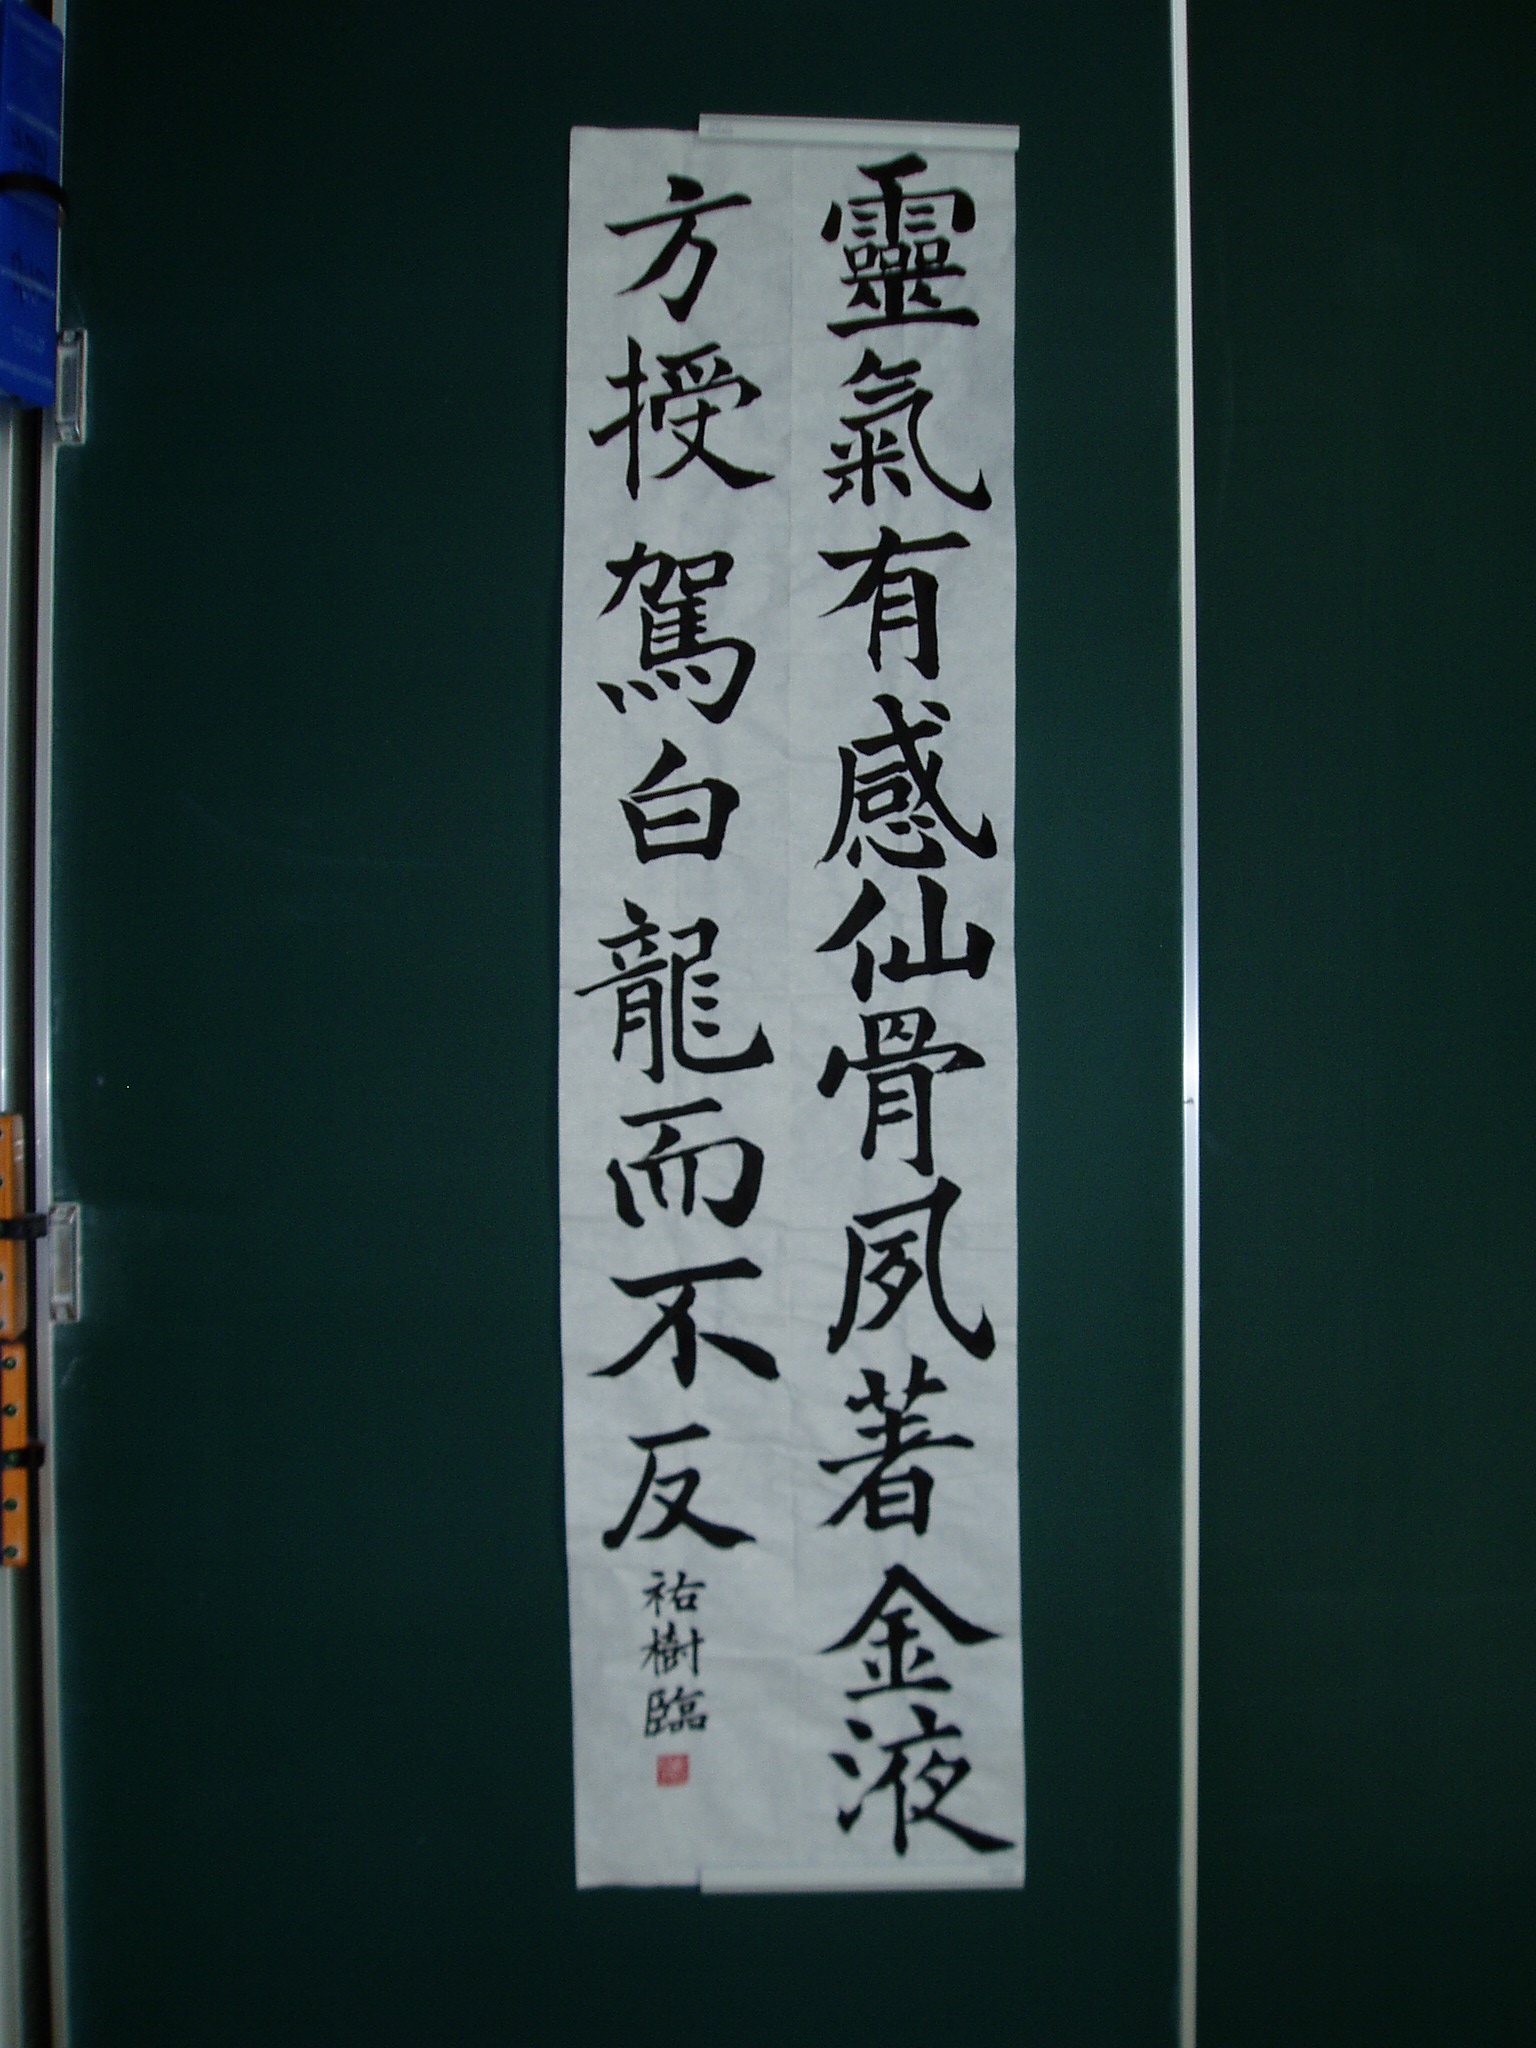 靈氣有感仙骨夙著金液
方授駕白龍而不反
祐樹臨